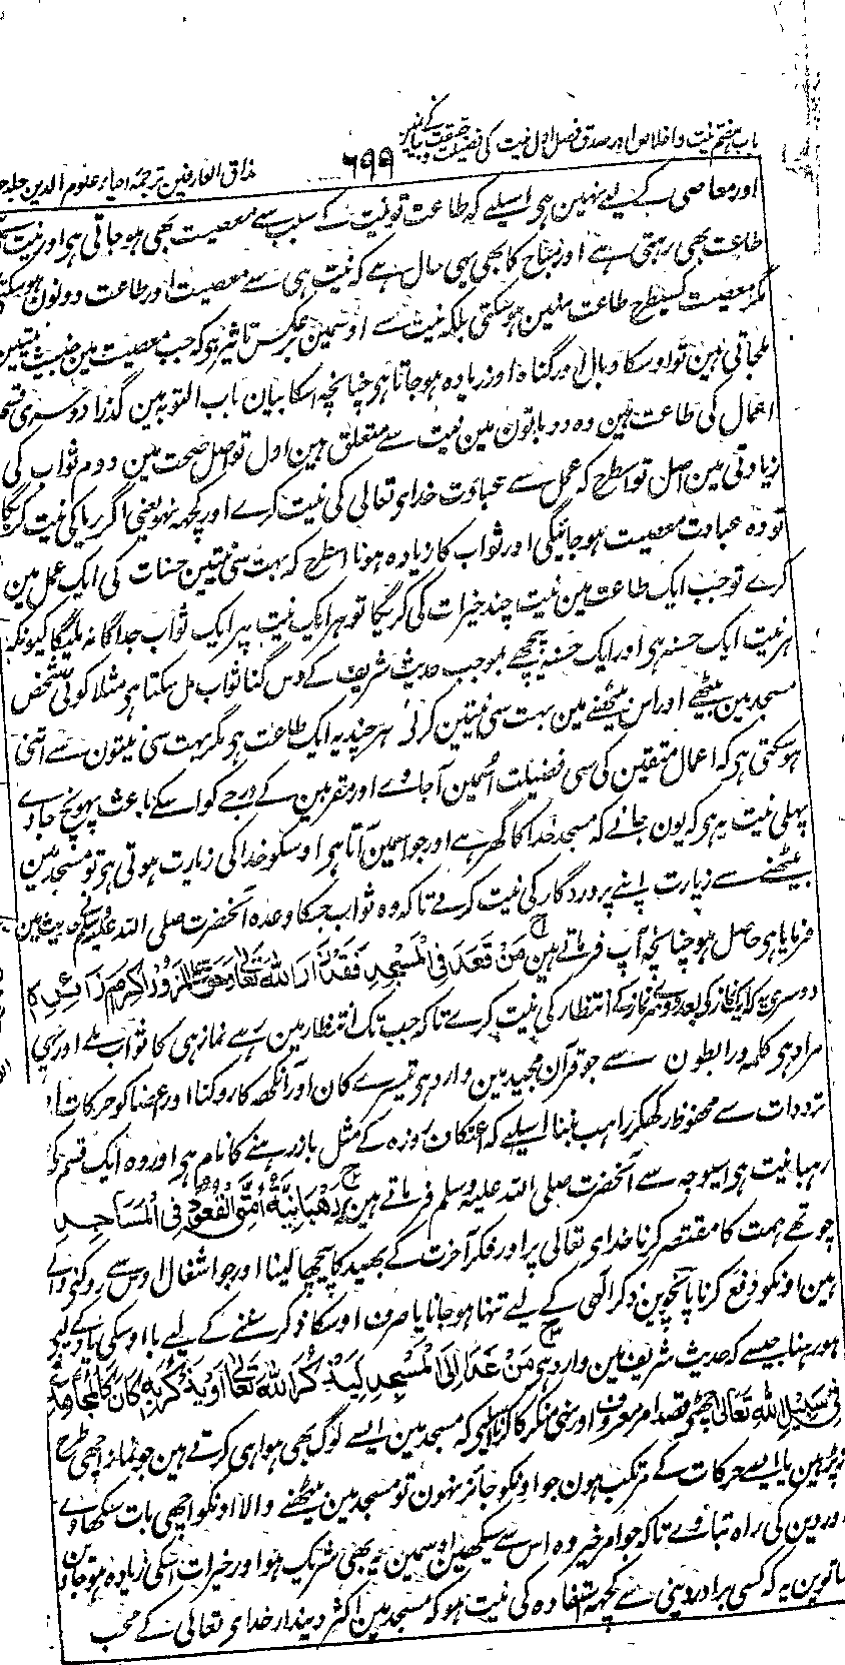 باب ہفتم نیت و اخلاص اور صدق فصل اول نیت کی فضیلت و حقیقت کے بیان مین
۶۹۹
مذاق العارفین ترجمہ احیاء علوم الدین جلد
اور معاصی کے لیے نہین ہی اسلیے کہ طاعت تو نیت کے سبب سے معصیت بھی ہوجاتی ہی اور نیت سے
طاعت بھی رہتی ہے اور مباح کا بھی یہی حال ہے کہ نیت ہی سے معصیت اور طاعت دونون ہوسکتی
مگر معصیت کسیطرح طاعت نہین ہوسکتی بلکہ نیت سے اوسمین برعکس تاثیر ہی کہ جب معصیت مین خبیث نیتین
ملجاتی ہین تو اوسکا وبال اور گناہ اور زیادہ ہوجاتا ہی چنانچہ اسکا بیان باب التوبہ مین گذرا دوسری قسم
اعمال کی طاعت ہین وہ دو باتون مین نیت سے متعلق ہین اول تو اصل صحت مین دوم ثواب کی
زیادتی مین اصل تو اسطرح کہ عمل سے عبادت خدای تعالی کی نیت کرے اور کچھ نہو یعنی اگر ریا کی نیت کریگا
تو وہ عبادت معصیت ہوجائیگی اور ثواب کا زیادہ ہونا اسطرح کہ بہت سی نیتین حسنات کی ایک عمل مین
کرے تو جب ایک طاعت مین نیت چند خیرات کی کریگا تو ہر ایک نیت پر ایک ثواب جداگانہ ملیگا کیونکہ
ہر نیت ایک حسنہ ہی اور ایک حسنہ پیچھے بموجب حدیث شریف کے دس گنا ثواب مل سکتا ہی مثلا کوئی شخص
مسجد مین بیٹھے اور اس بیٹھنے مین بہت سی نیتین کرلے ہر چند یہ ایک طاعت ہی مگر بہت سی نیتون سے اتنی
ہوسکتی ہی کہ اعمال متقین کی سی فضیلت اسمین آجاوے اور مقربین کے درجے کو اسکے باعث پہونچ جاوے
پہلی نیت یہ ہی کہ یون جانے کہ مسجد خدا کا گھر ہے اور جو اسمین آتا ہی اوسکو خدا کی زیارت ہوتی ہی تو مسجد مین
بیٹھنے سے زیارت اپنے پروردگار کی نیت کرے تاکہ وہ ثواب جسکا وعدہ آنحضرت صلی اللہ علیہ وسلم نے حدیث مین
فرمایا ہی حاصل ہو چنانچہ آپ فرماتے ہین مَنْ قَعَدَ فِی الْمَسْجِدِ فَقَدْ زَارَ اللّٰهَ تَعَالٰی وَحَقٌّ عَلَی الْمَزُوْرِ اِکْرَامُ زَائِرِہٖ
دوسری یہ کہ ایک نماز کے بعد دوسری نماز کے انتظار کی نیت کرے تاکہ جب تک انتظار مین رہے نماز ہی کا ثواب ملے اور یہی
مراد ہی کلمہ ورابطون سے جو قرآن مجید مین وارد ہی تیسرے کان اور آنکھ کا روکنا اور اعضا کو حرکات
ترددات سے محفوظ رکھکر راہب بننا اسلیے کہ اعتکاف روزہ کے مثل باز رہنے کا نام ہی اور وہ ایک قسم کی
رہبانیت ہی اسیوجہ سے آنحضرت صلی اللہ علیہ وسلم فرماتے ہین رَهْبَانِیَّةُ اُمَّتِی الْقُعُوْدُ فِی الْمَسَاجِدِ
چوتھے ہمت کا مقتصر کرنا خدای تعالی پر اور فکر آخرت کے بھید کا پیچھا لینا اور جو اشغال اوس سے روکنے والے
ہین اونکو دفع کرنا پانچوین ذکر الٰہی کے لیے تنہا ہوجانا یا صرف اوسکا ذکر سننے کے لیے یا اوسکی یاد کے لیے
ہو رہنا جیسے کہ حدیث شریف مین وارد ہی مَنْ غَدَا اِلَی الْمَسْجِدِ لِیَذْکُرَ اللّٰهَ تَعَالٰی اَوْ یُذَکِّرَ بِہٖ کَانَ کَالْمُجَاهِدِ
فِیْ سَبِیْلِ اللّٰهِ تَعَالٰی چھٹی قصد امر معروف اور نہی منکر کا کرنا اسلیے کہ مسجد مین ایسے لوگ بھی ہوا ہی کرتے ہین جو نماز اچھی طرح
نہ پڑھین یا ایسے حرکات کے مرتکب ہون جو اونکو جائز نہون تو مسجد مین بیٹھنے والا اونکو اچھی بات سکھاوے
اور دین کی راہ بتاوے تاکہ جو امر خیر وہ اس سے سیکھین اوسمین یہ بھی شریک ہو اور خیرات اسکی زیادہ ہوجاوین
ساتوین یہ کہ کسی برادر دینی سے کچھ استفادہ کی نیت ہو کہ مسجد مین اکثر دیندار خدای تعالی کے محب